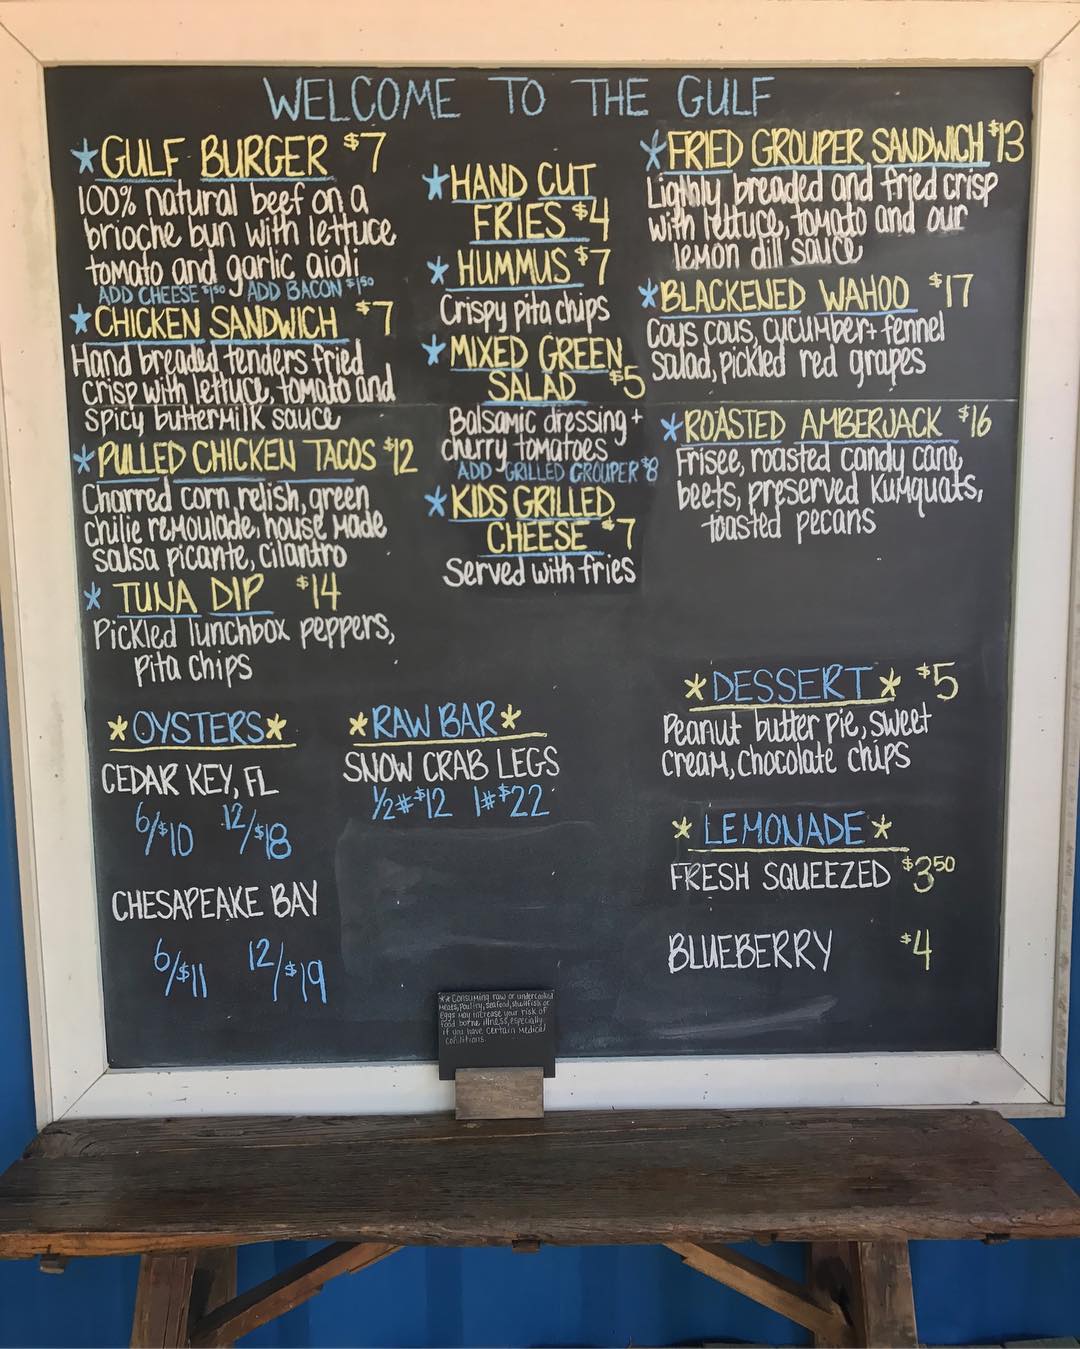 WELCOME TO THE GULF
*GULF BURGER $7
100% natural beef on a
brioche bun with lettuce
tomato and garlic aioli
ADD CHEESE $1.50 ADD BACON $1.50
*CHICKEN SANDWICH $7
Hand breaded tenders fried
crisp with lettuce, tomato and
spicy buttermilk sauce
*PULLED CHICKEN TACOS $12
Charred corn relish, green
chilie remoulade, house made
salsa picante, cilantro
*TUNA DIP $14
Pickled lunchbox peppers,
pita chips
*HAND CUT
FRIES $4
*HUMMUS $7
Crispy pita chips
*MIXED GREEN
SALAD $5
Balsamic dressing +
cherry tomatoes
ADD GRILLED GROUPER $8
*KIDS GRILLED
CHEESE $7
Served with fries
*FRIED GROUPER SANDWICH $13
Lighly breaded and fried crisp
with lettuce, tomato and our
lemon dill sauce
*BLACKENED WAHOO $17
Cous cous, cucumber + fennel
salad, pickled red grapes
*ROASTED AMBERJACK $16
Frisee, roasted candy cane
beets, preserved kumquats,
toasted pecans
*OYSTERS*
CEDAR KEY, FL
6/$10 12/$18
CHESAPEAKE BAY
6/$11 12/$19
*RAW BAR*
SNOW CRAB LEGS
1/2# $12 1# $22
*DESSERT* $5
Peanut butter pie, sweet
cream, chocolate chips
*LEMONADE*
FRESH SQUEEZED $3.50
BLUEBERRY $4
** Consuming raw or undercooked
meats, poultry, seafood, shellfish or
eggs may increase your risk of
food borne illness, especially
if you have certain medical
conditions.